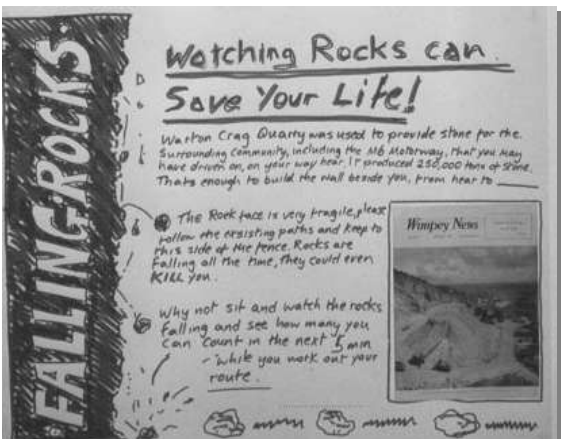 FALLING ROCKS
Watching Rocks can
Save Your Life!
Warton Crag Quarry was used to provide stone for the
Surrounding Community, including the M6 Motorway, that you may
have driven on, on your way hear. It produced 250,000 tons of stone.
Thats enough to build the wall beside you, from hear to
The Rock face is very fragile, please
follow the exsisting paths and keep to
this side of the fence. Rocks are
Falling all the time, they could even
KILL you.
Why not sit and watch the rocks
falling and see how many you
can count in the next 5 min
- while you work out your
route.
Wimpey News